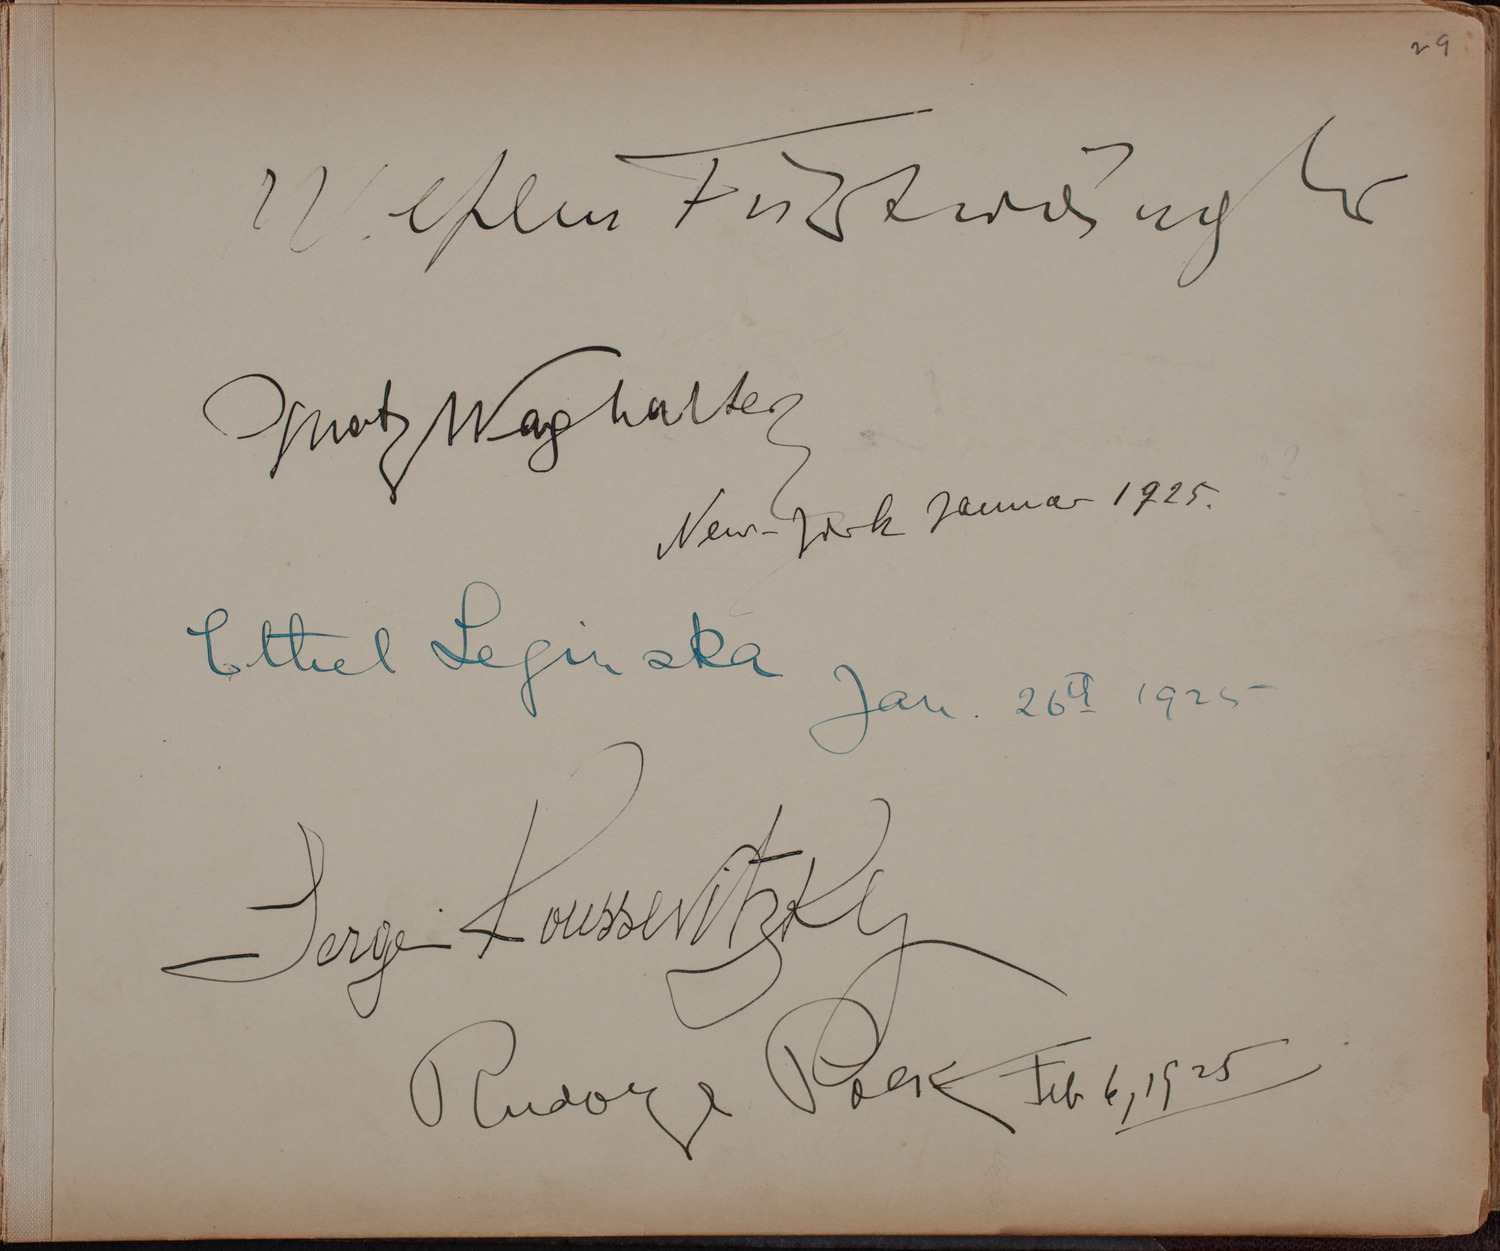 29
Wilhelm Furtwängler
Ignatz Waghalter
New-York Januar 1925.
Ethel Leginska
Jan. 26th 1925
Serge Koussevitzky
Rudolph Polk Feb 6, 1925